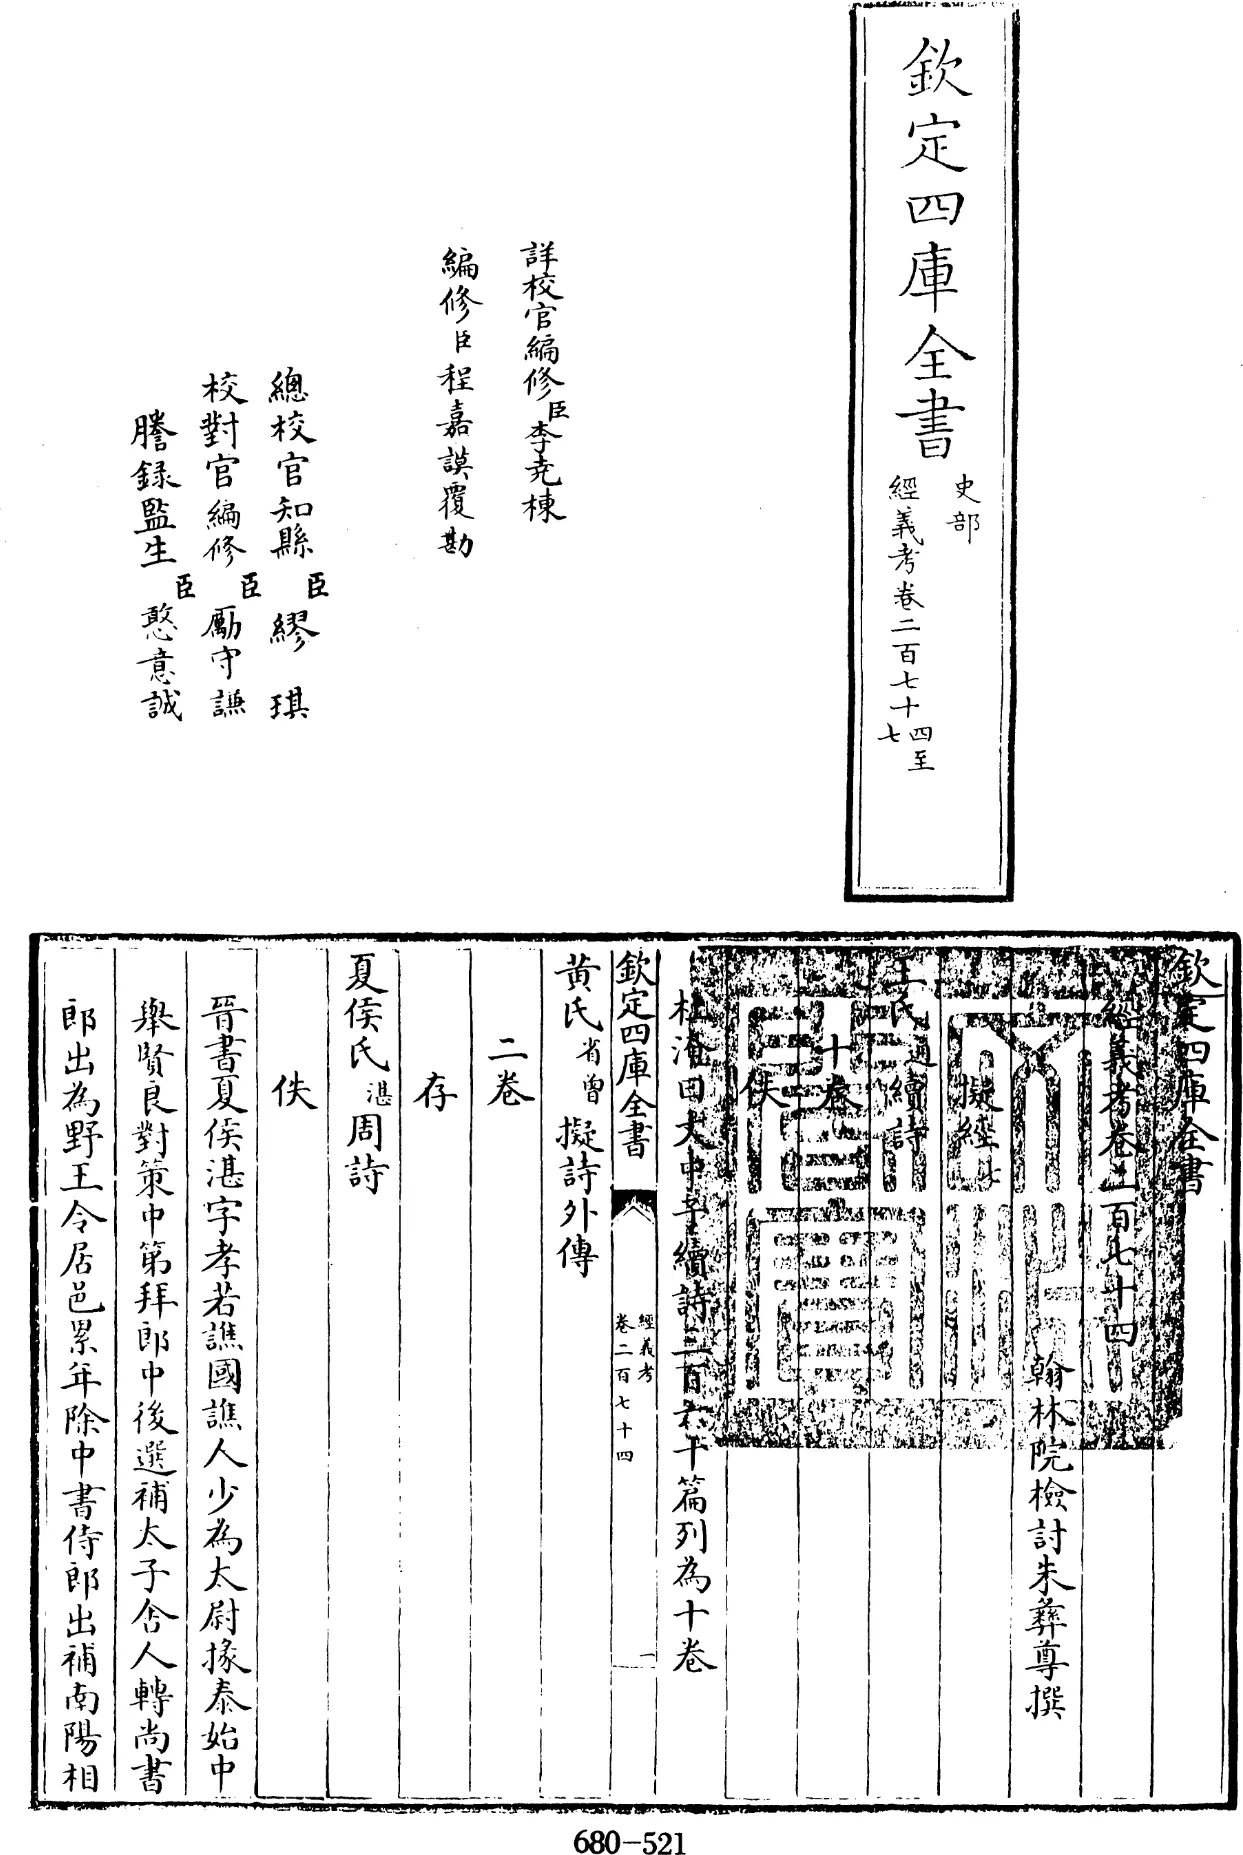 欽定四庫全書
史部
經義考卷二百七十四至
七
詳校官編修臣李堯棟
編修臣程嘉謨覆勘
總校官知縣臣繆琪
校對官編修臣勵守謙
謄錄監生臣憨意誠
欽定四庫全書
經義考卷二百七十四
翰林院檢討朱彝尊撰
擬經七
王氏通續詩
十卷
佚
杜淹曰文中子續詩三百六十篇列為十卷
欽定四庫全書
經義考
卷二百七十四
一
黃氏省曾擬詩外傳
二卷
存
夏侯氏湛周詩
佚
晉書夏侯湛字孝若譙國譙人少為太尉掾泰始中
舉賢良對策中第拜郎中後選補太子舍人轉尚書
郎出為野王令居邑累年除中書侍郎出補南陽相
680-521